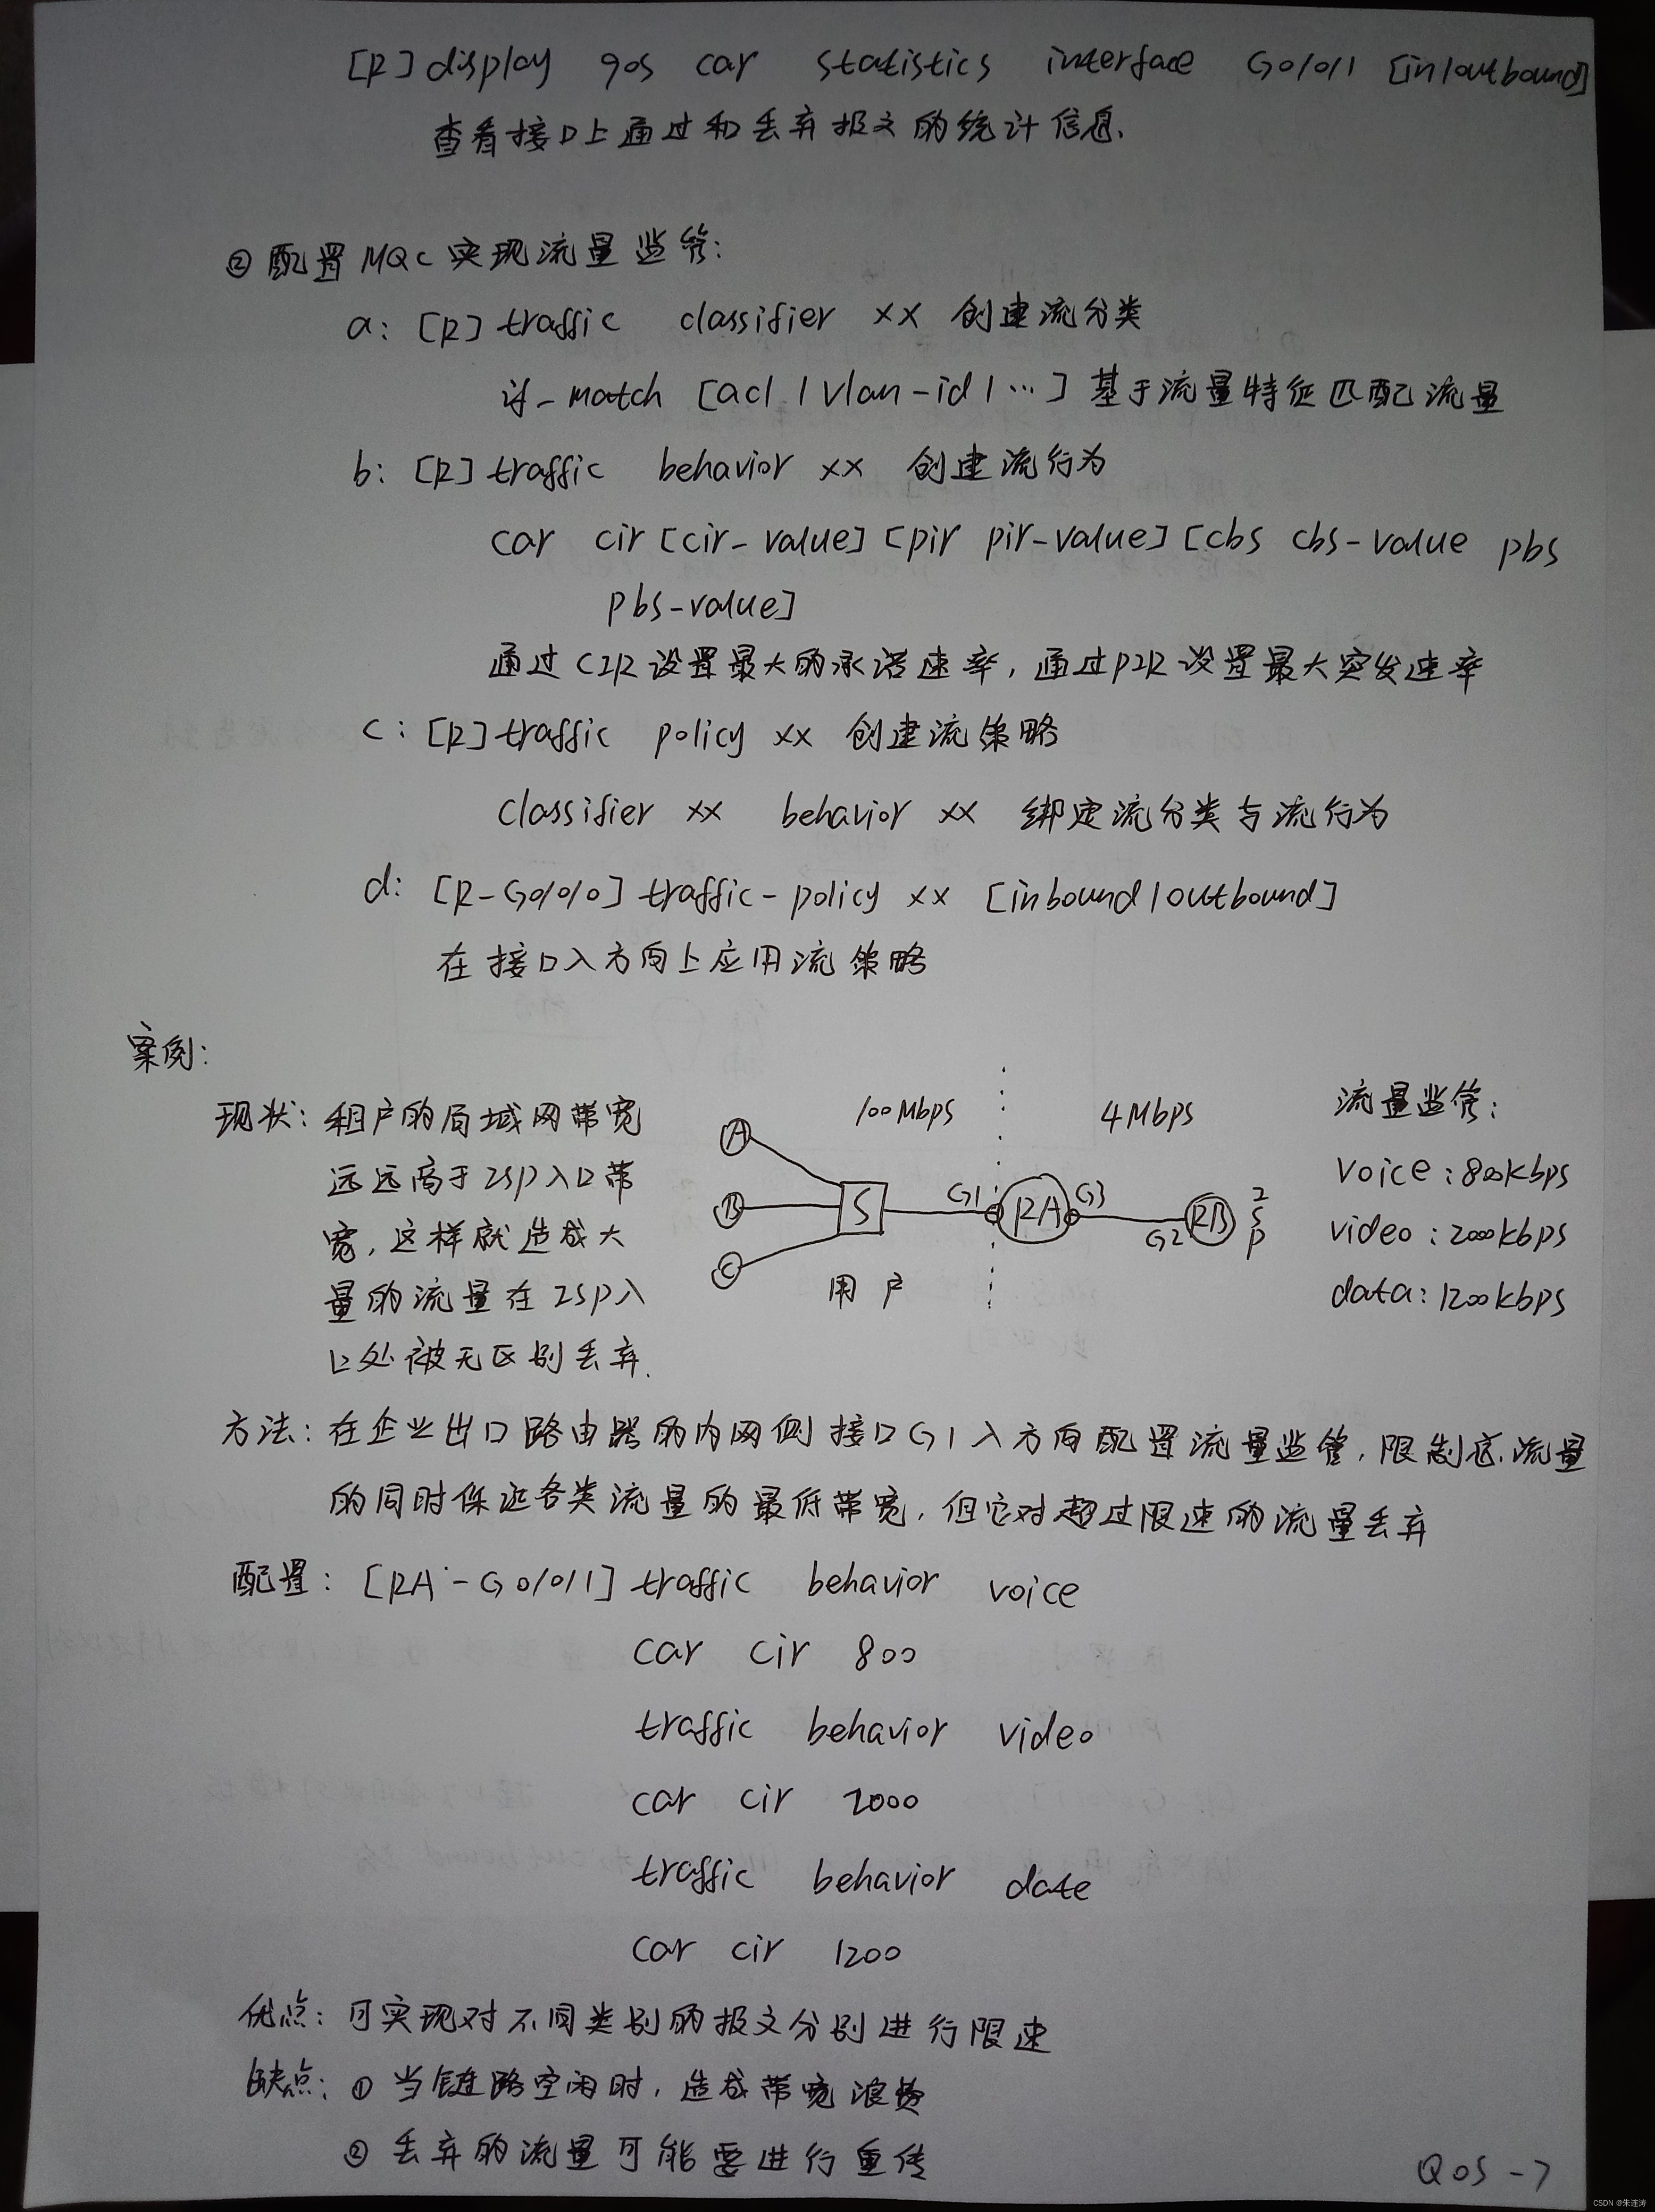 [R] display qos car statistics interface G0/0/1 [in/outbound]
查看接口上通过和丢弃报文的统计信息.
② 配置MQC实现流量监管:
a: [R] traffic classifier xx 创建流分类
if-match [acl | vlan-id | …] 基于流量特征匹配流量
b: [R] traffic behavior xx 创建流行为
car cir [cir-value] [pir pir-value] [cbs cbs-value pbs
pbs-value]
通过CIR设置最大的承诺速率, 通过PIR设置最大突发速率
c: [R] traffic policy xx 创建流策略
classifier xx behavior xx 绑定流分类与流行为
d: [R-G0/0/0] traffic-policy xx [inbound/outbound]
在接口入方向上应用流策略
案例:
现状: 租户的局域网带宽
远远高于ISP入口带
宽, 这样就造成大
量的流量在ISP入
口处被无区别丢弃.
100Mbps 4Mbps
A
B
C
S G1 RA G3 G2 RB ISP
用户
流量监管:
voice: 800kbps
video: 2000kbps
data: 1200kbps
方法: 在企业出口路由器的内网侧接口G1入方向配置流量监管, 限制总流量
的同时保证各类流量的最低带宽, 但它对超过限速的流量丢弃
配置: [RA-G0/0/1] traffic behavior voice
car cir 800
traffic behavior video
car cir 2000
traffic behavior date
car cir 1200
优点: 可实现对不同类别的报文分别进行限速
缺点: ① 当链路空闲时, 造成带宽浪费
② 丢弃的流量可能要进行重传
QOS-7
CSDN @朱连涛